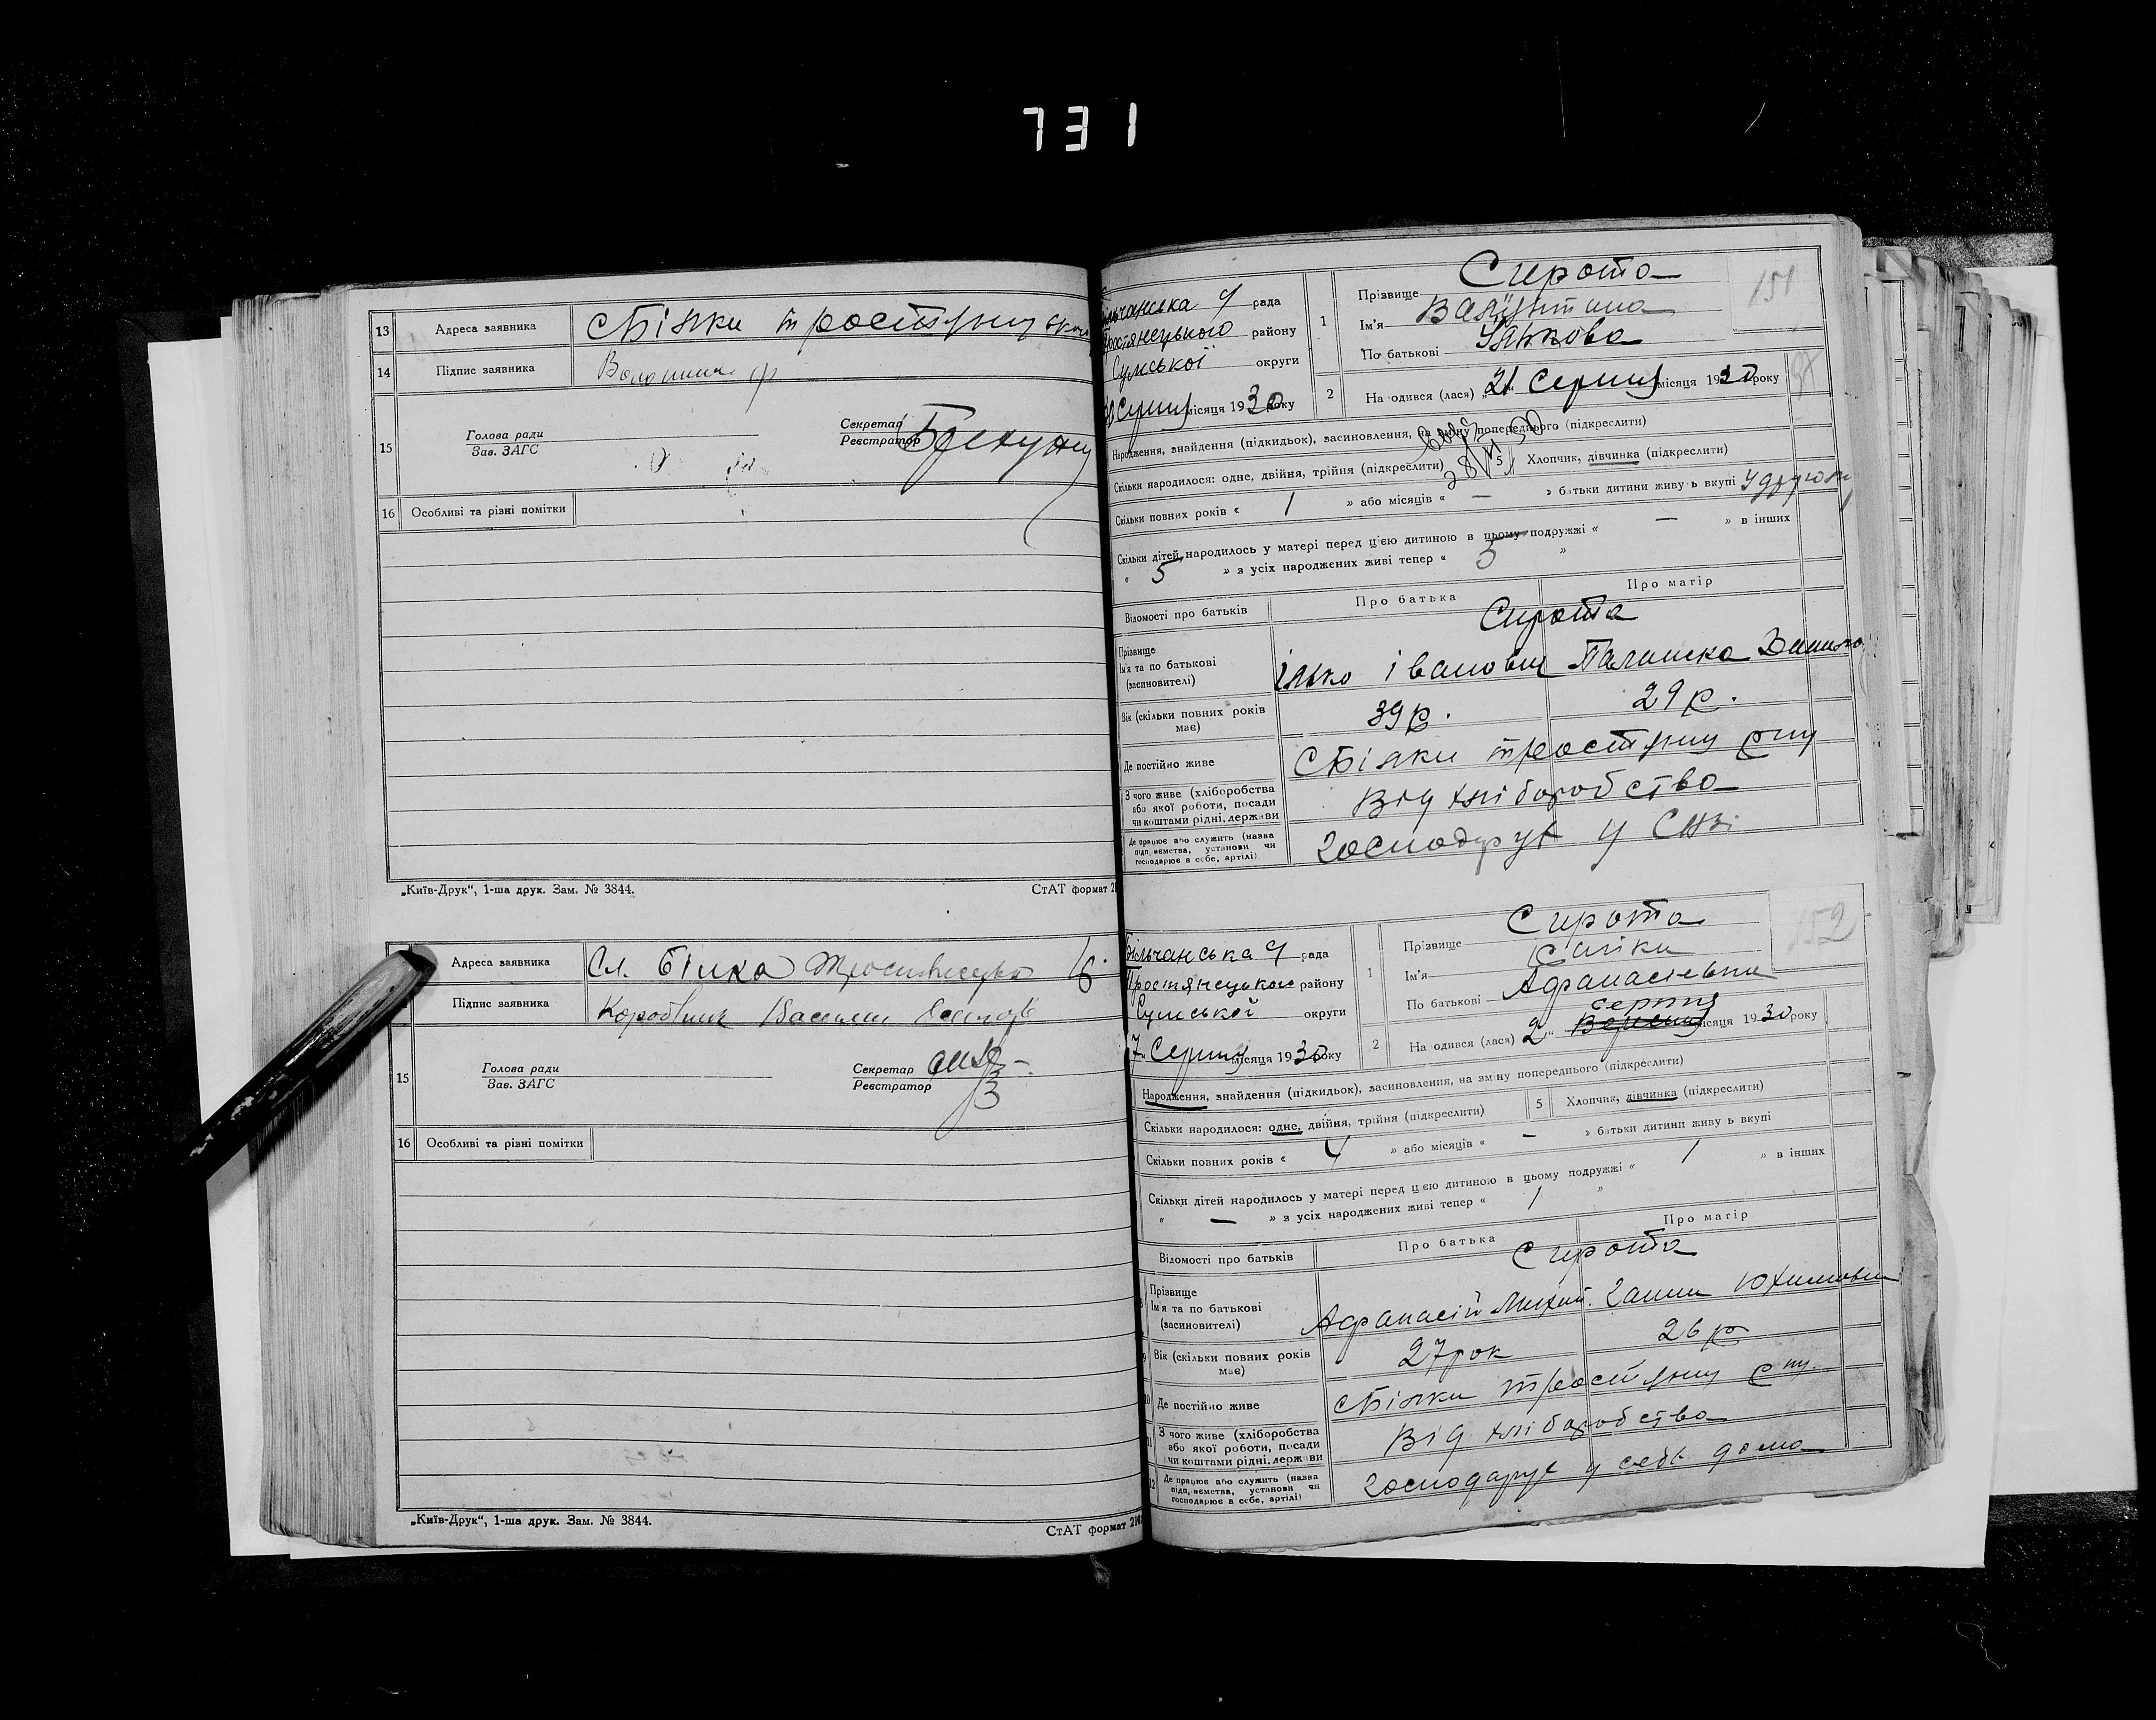 731
13 Адреса заявника с Білки тростянецького
14 Підпис заявника
15 Голова ради
Зав. ЗАГС
Секретар
Реєстратор
16 Особливі та різні помітки
„Київ-Друк“, 1-ша друк. Зам. № 3844.
СтАТ формат
Адреса заявника Сл. Білка Тростянецьк
Підпис заявника Василь
15 Голова ради
Зав. ЗАГС
Секретар
Реєстратор
16 Особливі та різні помітки
„Київ-Друк“, 1-ша друк. Зам. № 3844.
СтАТ формат
рада
Тростянецького району
Сумської округи
Серпня місяця 1930 року
1 Прізвище Сирота
Ім'я Валентина
По батькові Ількова
151
2 На одився (лася) „21“ Серпня місяця 1930 року
Народження, знайдення (підкидьок), засиновлення, на зміну попереднього (підкреслити)
Скільки народилося: одне, двійня, трійня (підкреслити) 5 Хлопчик, дівчинка (підкреслити)
Скільки повних років « 1 » або місяців « — » батьки дитини живу ь вкупі
Скільки дітей народилось у матері перед цією дитиною в цьому подружжі « — » в інших
« 5 » з усіх народжених живі тепер « 5 »
Відомості про батьків Про батька Про матір
Сирота
Прізвище
Ім'я та по батькові
(засиновителі)
Ілько Іванович
Вік (скільки повних років має) 39 р. 29 р.
Де постійно живе с Білки тростянец
З чого живе (хліборобства
або якої роботи, посади
чи коштами рідні, держави
Від хліборобство
Де працює або служить (назва
підприємства, установи чи
господарює в себе, артілі)
Господарує у
рада
Тростянецького району
Сумської округи
7 Серпня місяця 1930 року
1 Прізвище Сирота
Ім'я
По батькові Афанасіевна
152
серпня
2 На одився (лася) 2 “ місяця 1930 року
Народження, знайдення (підкидьок), засиновлення, на зміну попереднього (підкреслити)
Скільки народилося: одне, двійня, трійня (підкреслити) 5 Хлопчик, дівчинка (підкреслити)
Скільки повних років « 4 » або місяців « — » батьки дитини живу ь вкупі
Скільки дітей народилось у матері перед цією дитиною в цьому подружжі « 1 » в інших
« — » з усіх народжених живі тепер « 1 »
Відомості про батьків Про батька Про матір
Сирота
Прізвище
Ім'я та по батькові
(засиновителі)
Афанасій Ганна Юхимовна
Вік (скільки повних років має) 27 рок 26 р.
Де постійно живе с Білки тростянец
З чого живе (хліборобства
або якої роботи, посади
чи коштами рідні, держави
Від хліборобство
12 Де працює або служить (назва
підприємства, установи чи
господарює в себе, артілі)
Господарує у себе дома